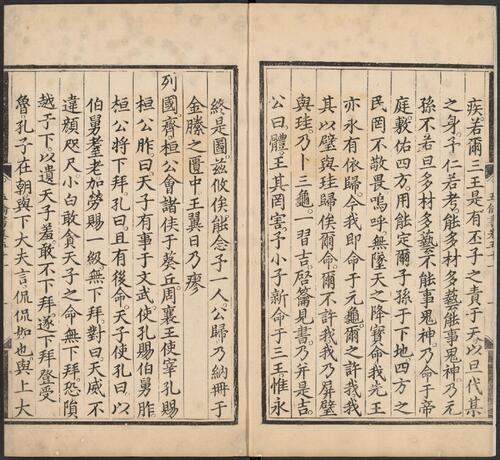 疾。若爾三王是有丕子之責于天。以旦代某
之身。予仁若考。能多材多藝。能事鬼神。乃元
孫不若旦多材多藝。不能事鬼神。乃命于帝
庭。敷佑四方。用能定爾子孫于下地。四方之
民罔不敬畏。嗚呼。無墜天之降寶命。我先王
亦永有依歸。今我即命于元龜。爾之許我。我
其以璧與珪。歸俟爾命。爾不許我。我乃屏璧
與珪。乃卜三龜。一習吉。啓籥見書。乃并是吉。
公曰。體。王其罔害。予小子新命于三王。惟永
終是圖。茲攸俟。能念予一人。公歸。乃納冊于
金縢之匱中。王翼日乃瘳
列國齊桓公會諸侯于葵丘。周襄王使宰孔賜
桓公胙。曰。天子有事于文武。使孔賜伯舅胙
桓公將下拜。孔曰。且有後命。天子使孔曰。以
伯舅耋老。加勞。賜一級。無下拜。對曰。天威不
違顏咫尺。小白敢貪天子之命。無下拜。恐隕
越于下。以遺天子羞。敢不下拜。遂下拜登受
魯。孔子在朝。與下大夫言。侃侃如也。與上大